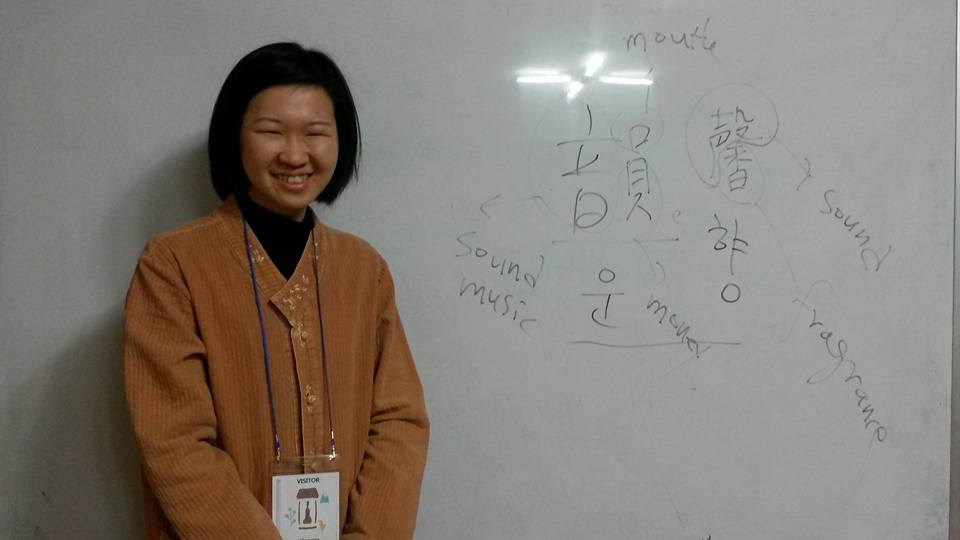 mouth
韻 馨
운 향
sound
music
money
sound
fragrance
VISITOR